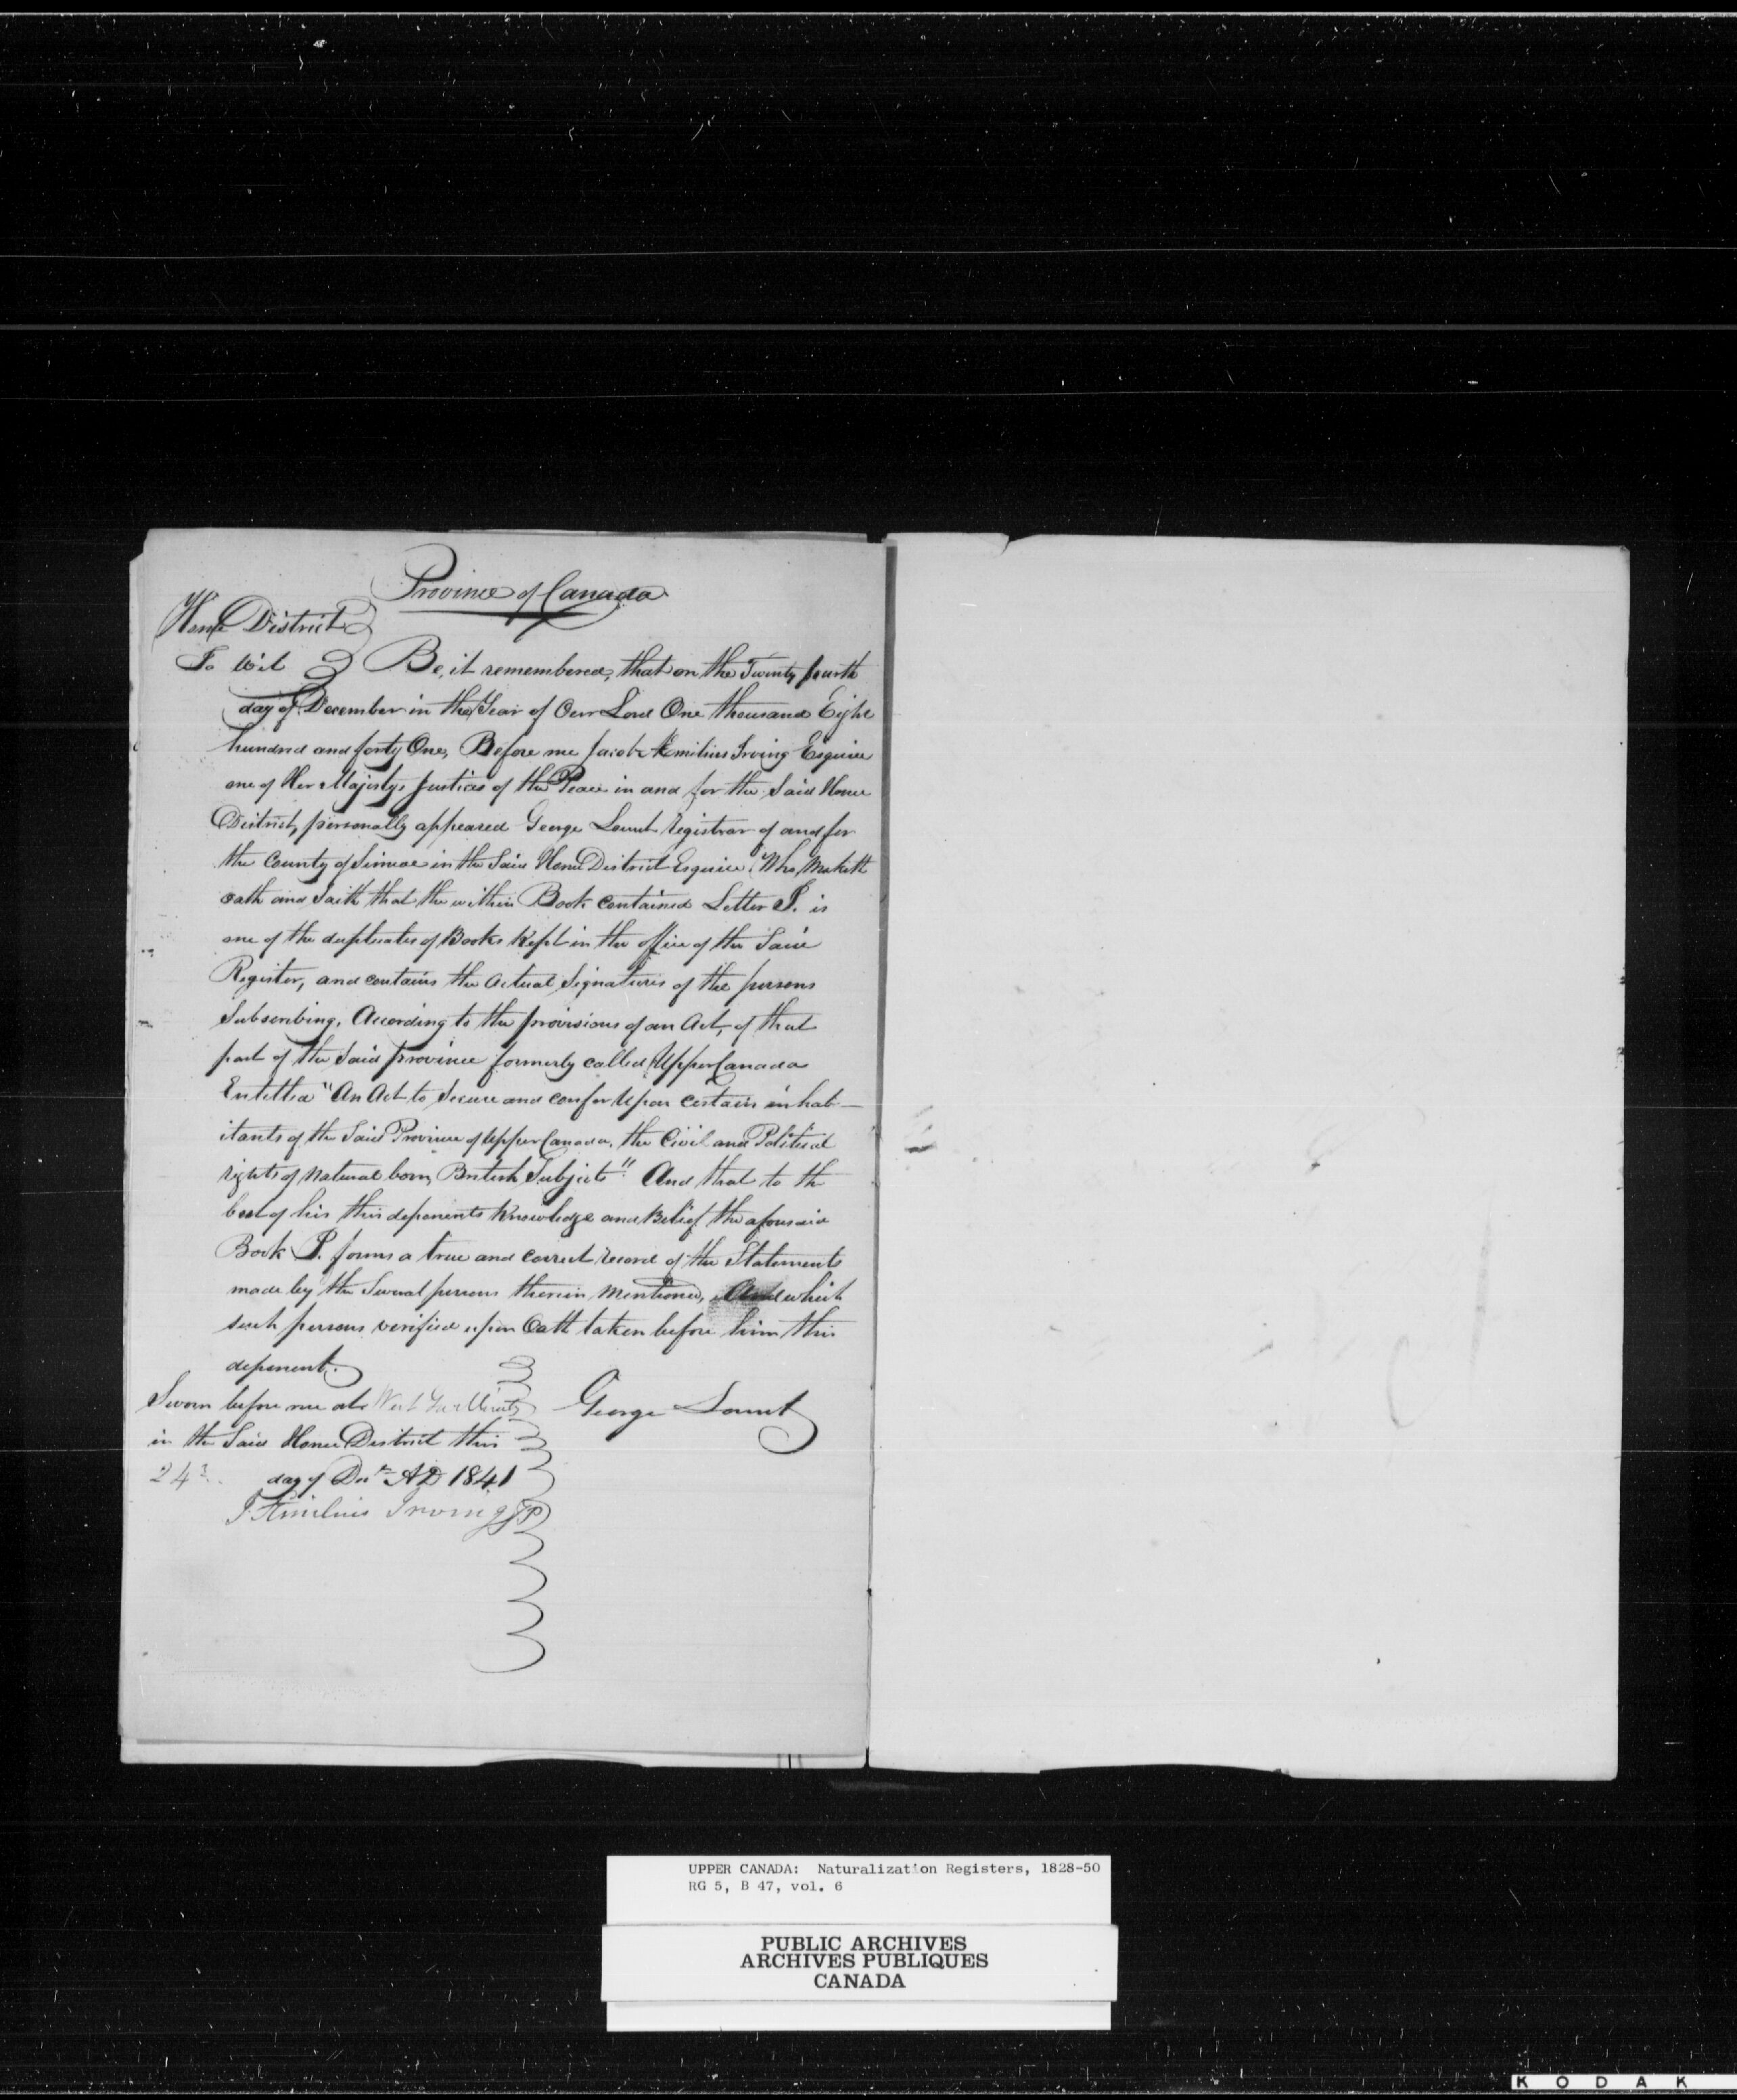 Province of Canada
Home District
To Wit Be, it remembered, that on the Twenty fourth
day of December in the Year of Our Lord One thousand Eight
hundred and forty One, Before me Jacob Aemilius Irving Esquire
one of Her Majestys Justices of the Peace in and for the Said Home
District, personally appeared George Lount Registrar of and for
the County of Simcoe in the Said Home District Esquire, Who, Maketh
oath and Saith that the within Book contained Letter P. is
one of the duplicates of Books Kept in the office of the Said
Register, and contains the actual Signatures of the persons
Subscribing, According to the provisions of an Act, of that
part of the Said province formerly called Upper Canada
Entitled "An Act to Secure and confer Upon certain inhab-
itants of the Said Province of Upper Canada, the Civil and Political
rights of Natural born British Subjects" And that to the
best of his this deponents Knowledge and Belief the aforesaid
Book P. forms a true and correct record of the Statements
made by the Several persons therein Mentioned, And which
such persons verified upon Oath taken before him this
deponent.
Sworn before me at West Gwillimbury
George Lount
in the Said Home District this
24th day of Decr AD 1841
J Æmilius Irving JP
UPPER CANADA: Naturalization Registers, 1828-50
RG 5, B 47, vol. 6
PUBLIC ARCHIVES
ARCHIVES PUBLIQUES
CANADA
KODAK